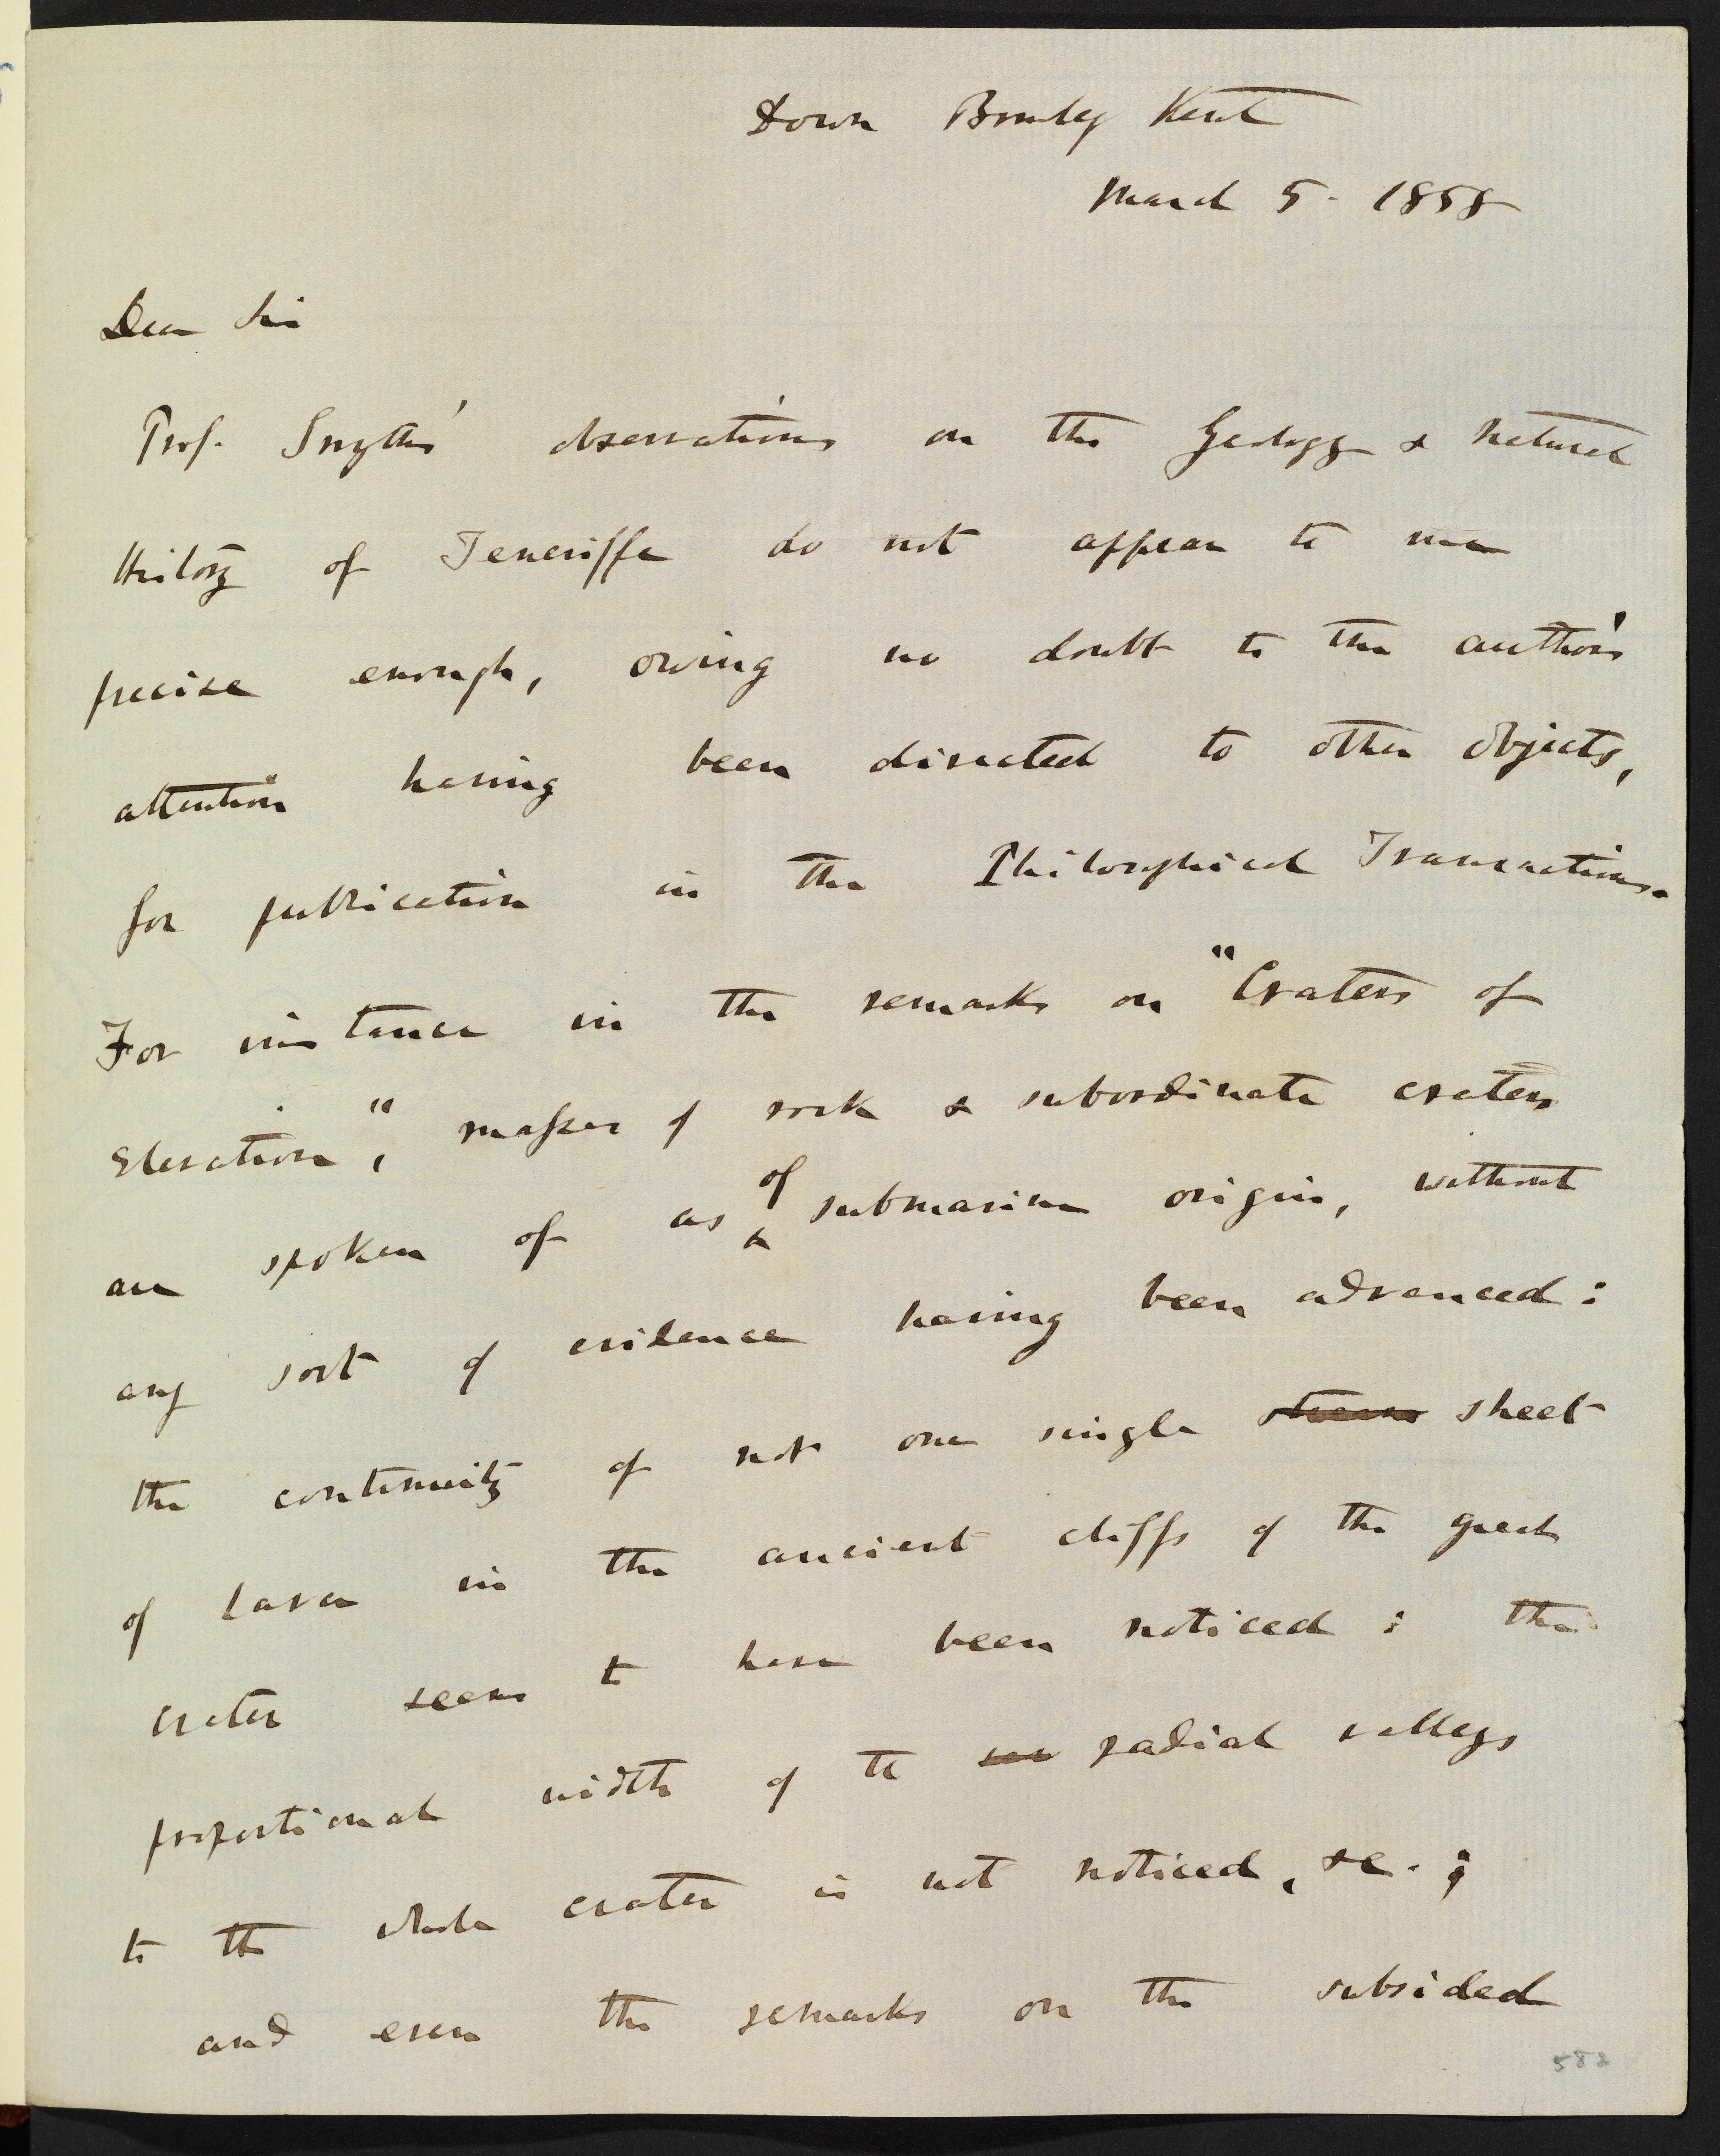 Down Bromley Kent
March 5. 1858
Dear Sir
Prof. Smyth's observations on the Geology & Natural
History of Teneriffe do not appear to me
precise enough, owing no doubt to the author's
attention having been directed to other objects,
for publication in the Philosophical Transactions.
For instance in the remarks on "Craters of
Elevation", masses of rock & subordinate craters
are spoken of as of submarine origin, without
any sort of evidence having been advanced:
the continuity of not one single stream sheet
of lava in the ancient cliffs of the great
crater seems to have been noticed: the
proportional width of the radial valleys
to the whole crater is not noticed, &c.;
and even the remarks on the subsided
582